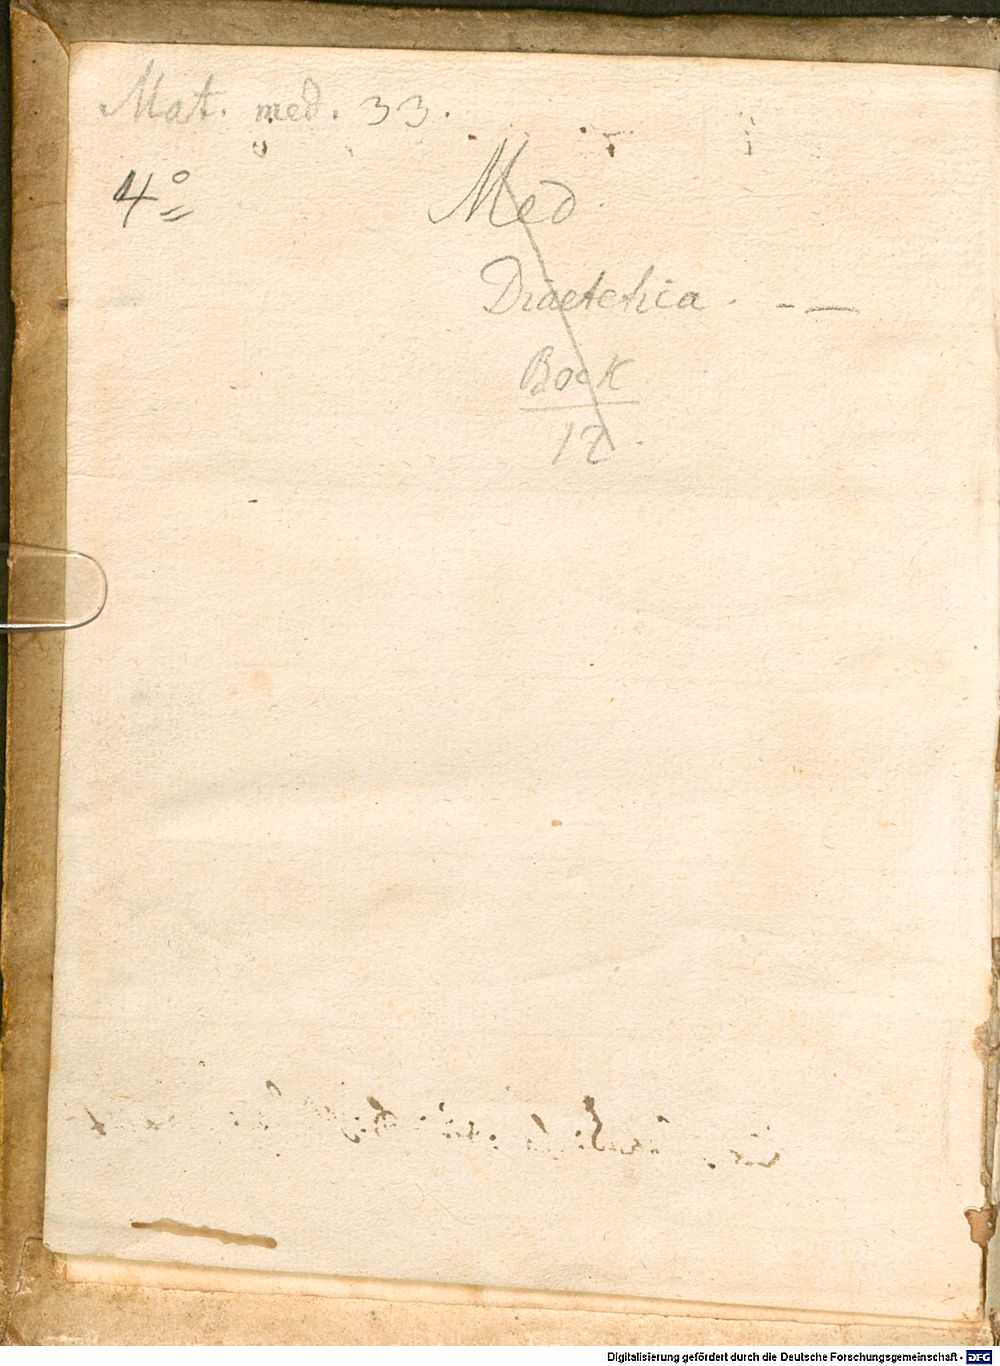 Mat. med. 33.
4°
Med.
Diaetetica. - —
Bock
12.
Digitalisierung gefördert durch die Deutsche Forschungsgemeinschaft - DFG